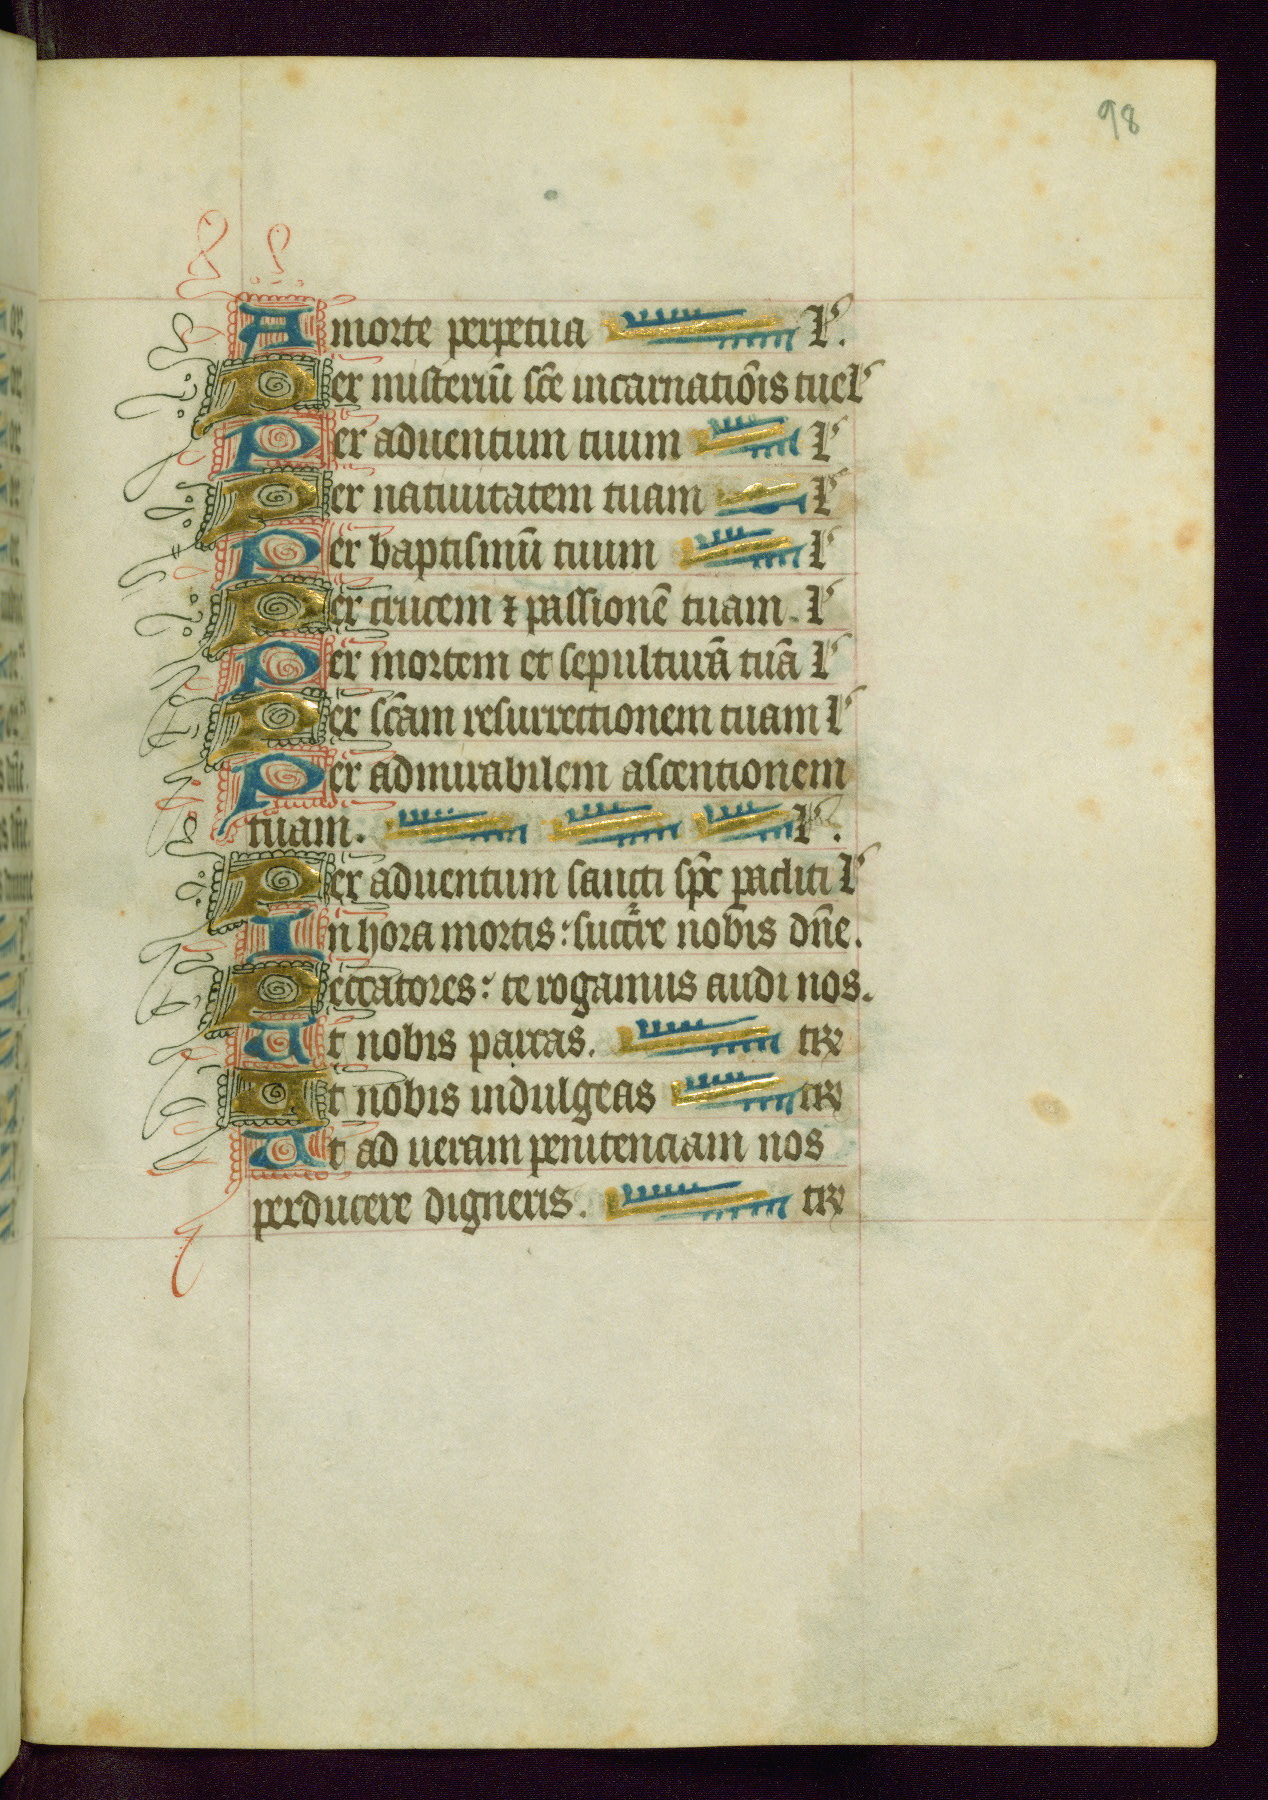 98
A morte perpetua L.
Per misteriū scē incarnatiōis tue L
Per aduentum tuum L
Per natiuitatem tuam L
Per baptismū tuum L
Per crucem ⁊ passionē tuam. L
Per mortem et sepulturā tuā L
Per sc̄am resurrectionem tuam L
Per admirabilem ascentionem
tuam. L.
Per aduentum sancti sp̄c p̄acliti L
In hora mortis: succ̄re nobis dn̄e.
Peccatores: te rogamus audi nos.
Ut nobis parcas. te
Ut nobis indulgeas te
Ut ad ueram penitenciam nos
perducere digneris. te